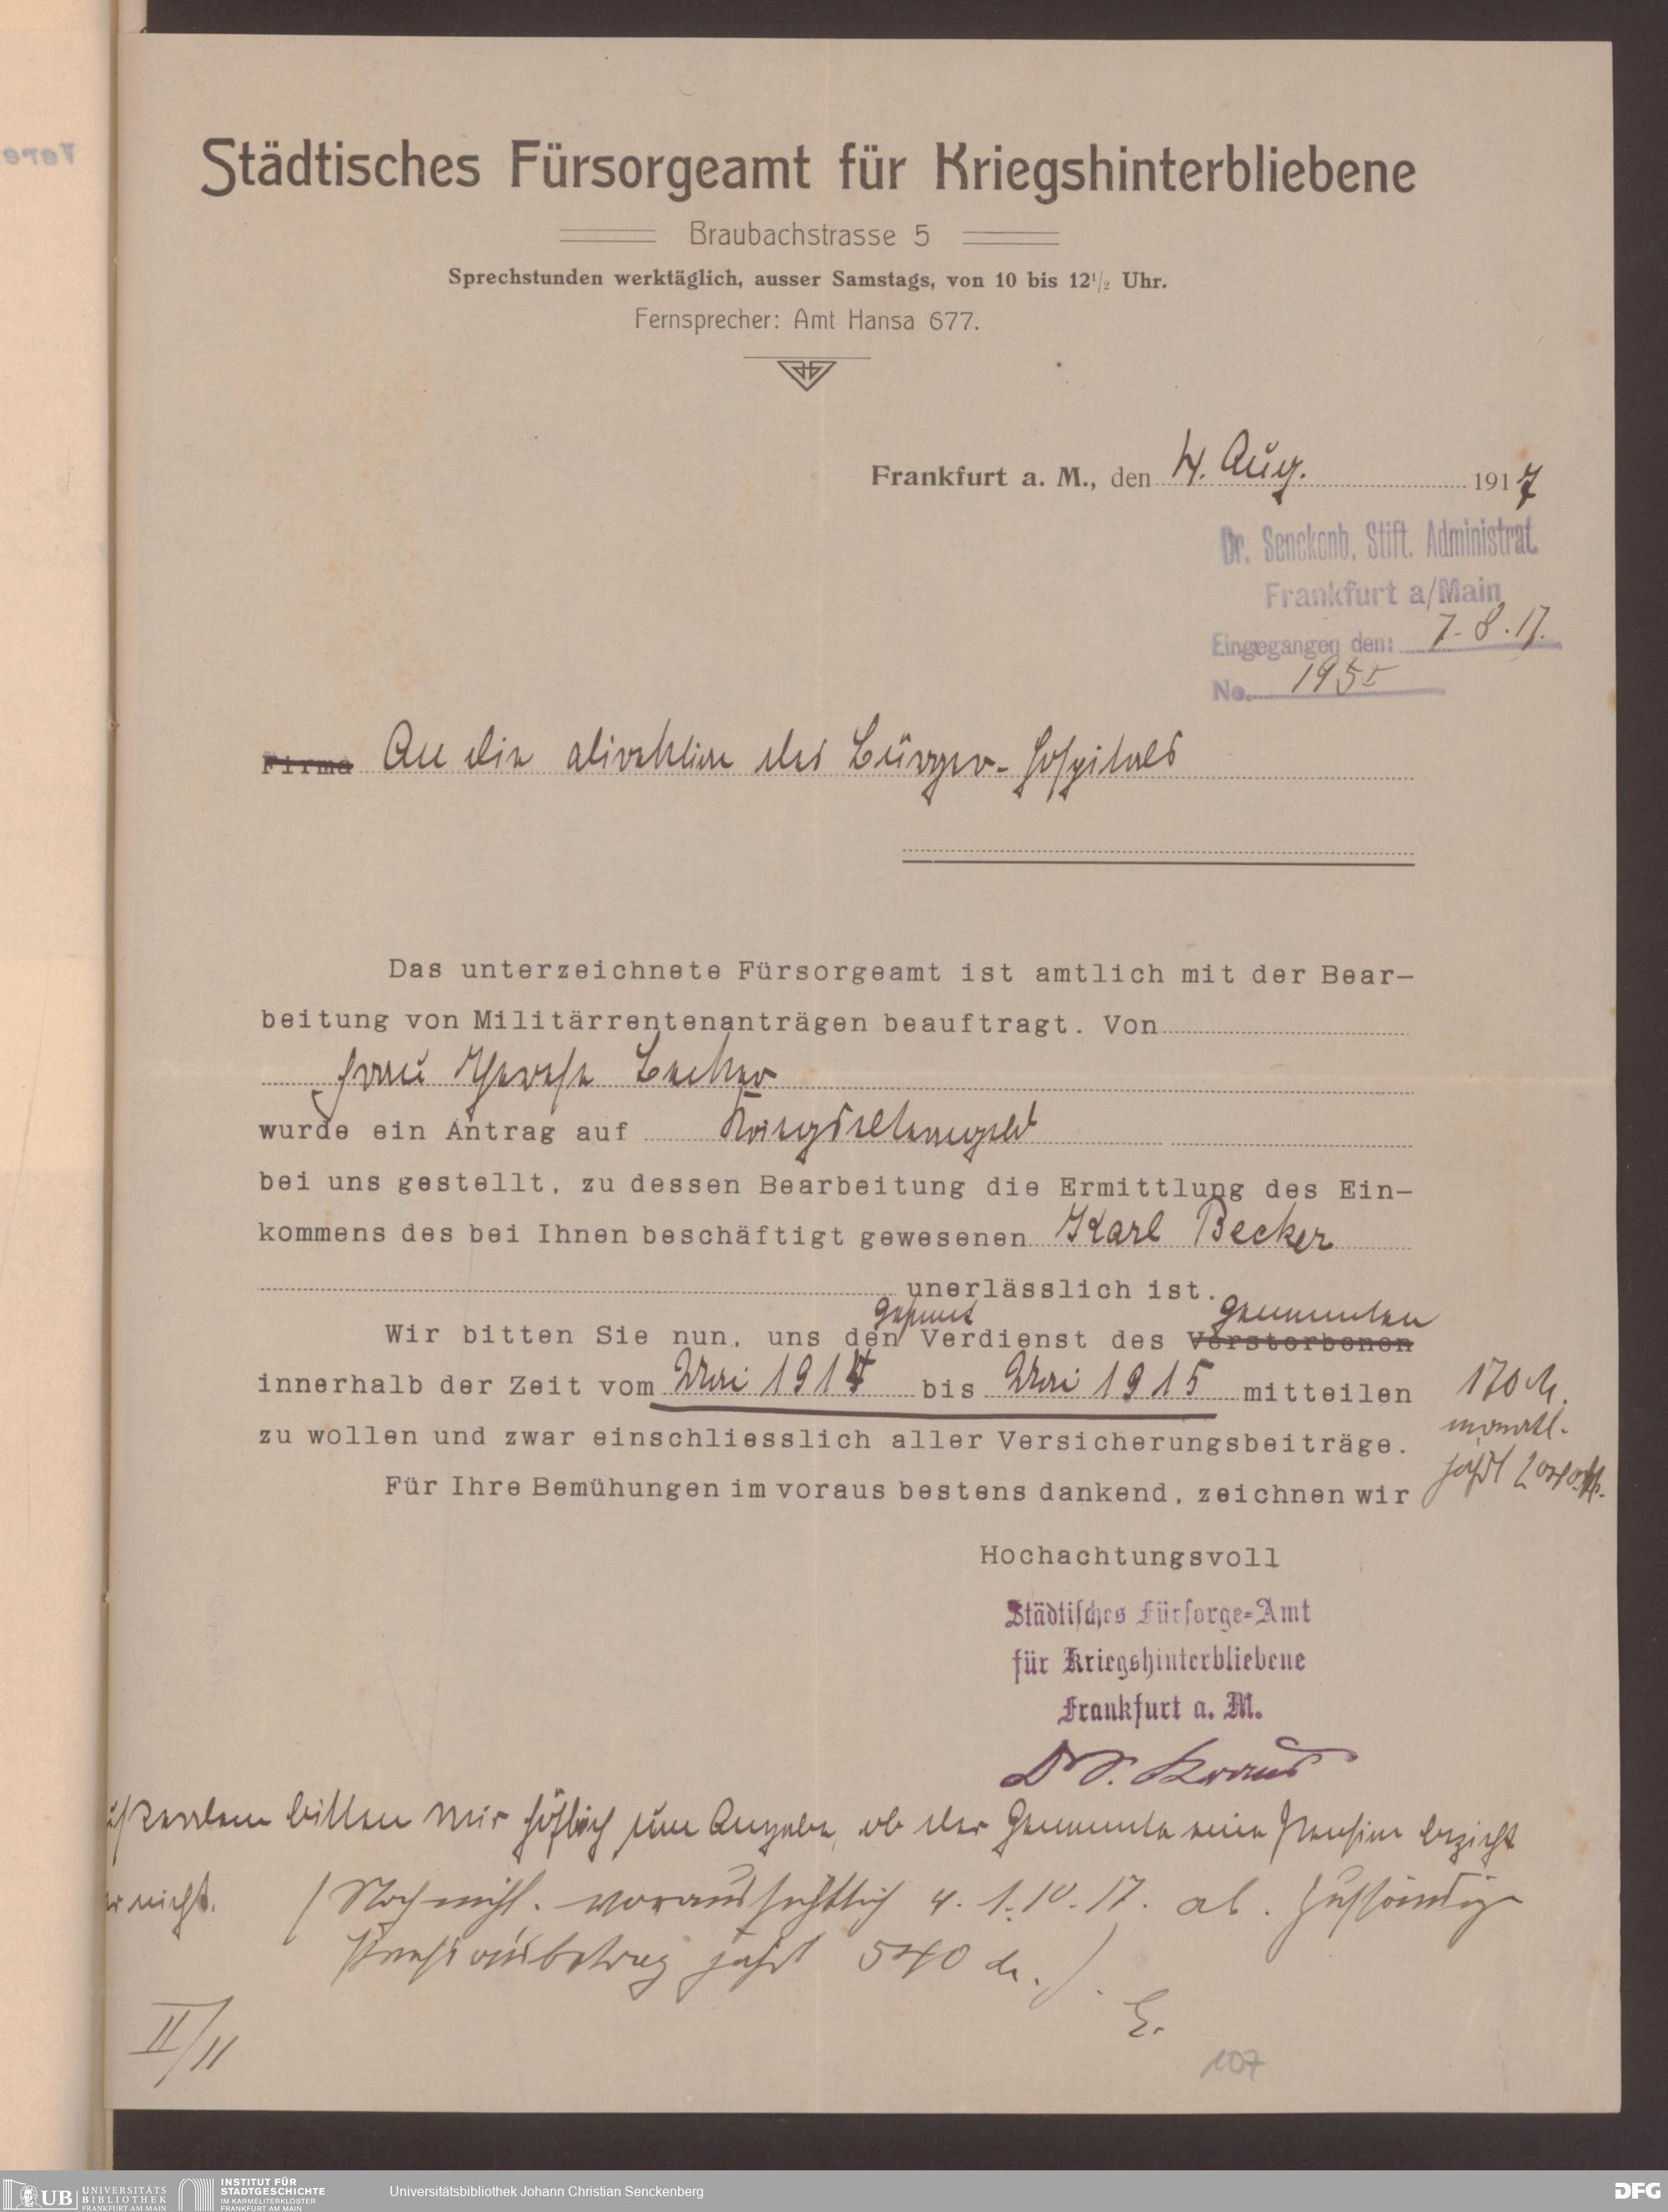 Städtisches Fürsorgeamt für Kriegshinterbliebene
Braubachstrasse 5
Sprechstunden werktäglich, ausser Samstags, von 10 bis 12 1/2 Uhr.
Fernsprecher: Amt Hansa 677.
Frankfurt a. M., den 4. Aug. 1917
Dr. Senckenb. Stift. Administrat.
Frankfurt a/Main
Eingegangen den: 7.8.17.
No. 1955
Firma An die Direktion des Bürger-Hospitals
Das unterzeichnete Fürsorgeamt ist amtlich mit der Bear-
beitung von Militärrentenanträgen beauftragt. Von
Frau Therese Becker
wurde ein Antrag auf Kriegselterngeld
bei uns gestellt, zu dessen Bearbeitung die Ermittlung des Ein-
kommens des bei Ihnen beschäftigt gewesenen Karl Becker
unerlässlich ist.
gesamt Genannten
Wir bitten Sie nun, uns den Verdienst des Verstorbenen
innerhalb der Zeit vom Mai 1914 bis Mai 1915 mitteilen
170 M.
monatl.
zu wollen und zwar einschliesslich aller Versicherungsbeiträge.
jährl 2040 M.
Für Ihre Bemühungen im voraus bestens dankend, zeichnen wir
Hochachtungsvoll
Städtisches Fürsorge-Amt
für Kriegshinterbliebene
Frankfurt a. M.
Dr. S. Kraus
Ausserdem bitten wir höflich um Angabe, ob der Genannte eine Pension bezieht
oder nicht. (Noch nicht. voraussichtlich v. 1.10.17. ab. Zuständige
Pensionsbetrag jährl 540 M.)
E.
II/11
107
UB UNIVERSITÄTS
BIBLIOTHEK
FRANKFURT AM MAIN
INSTITUT FÜR
STADTGESCHICHTE
IM KARMELITERKLOSTER
FRANKFURT AM MAIN
Universitätsbibliothek Johann Christian Senckenberg
DFG